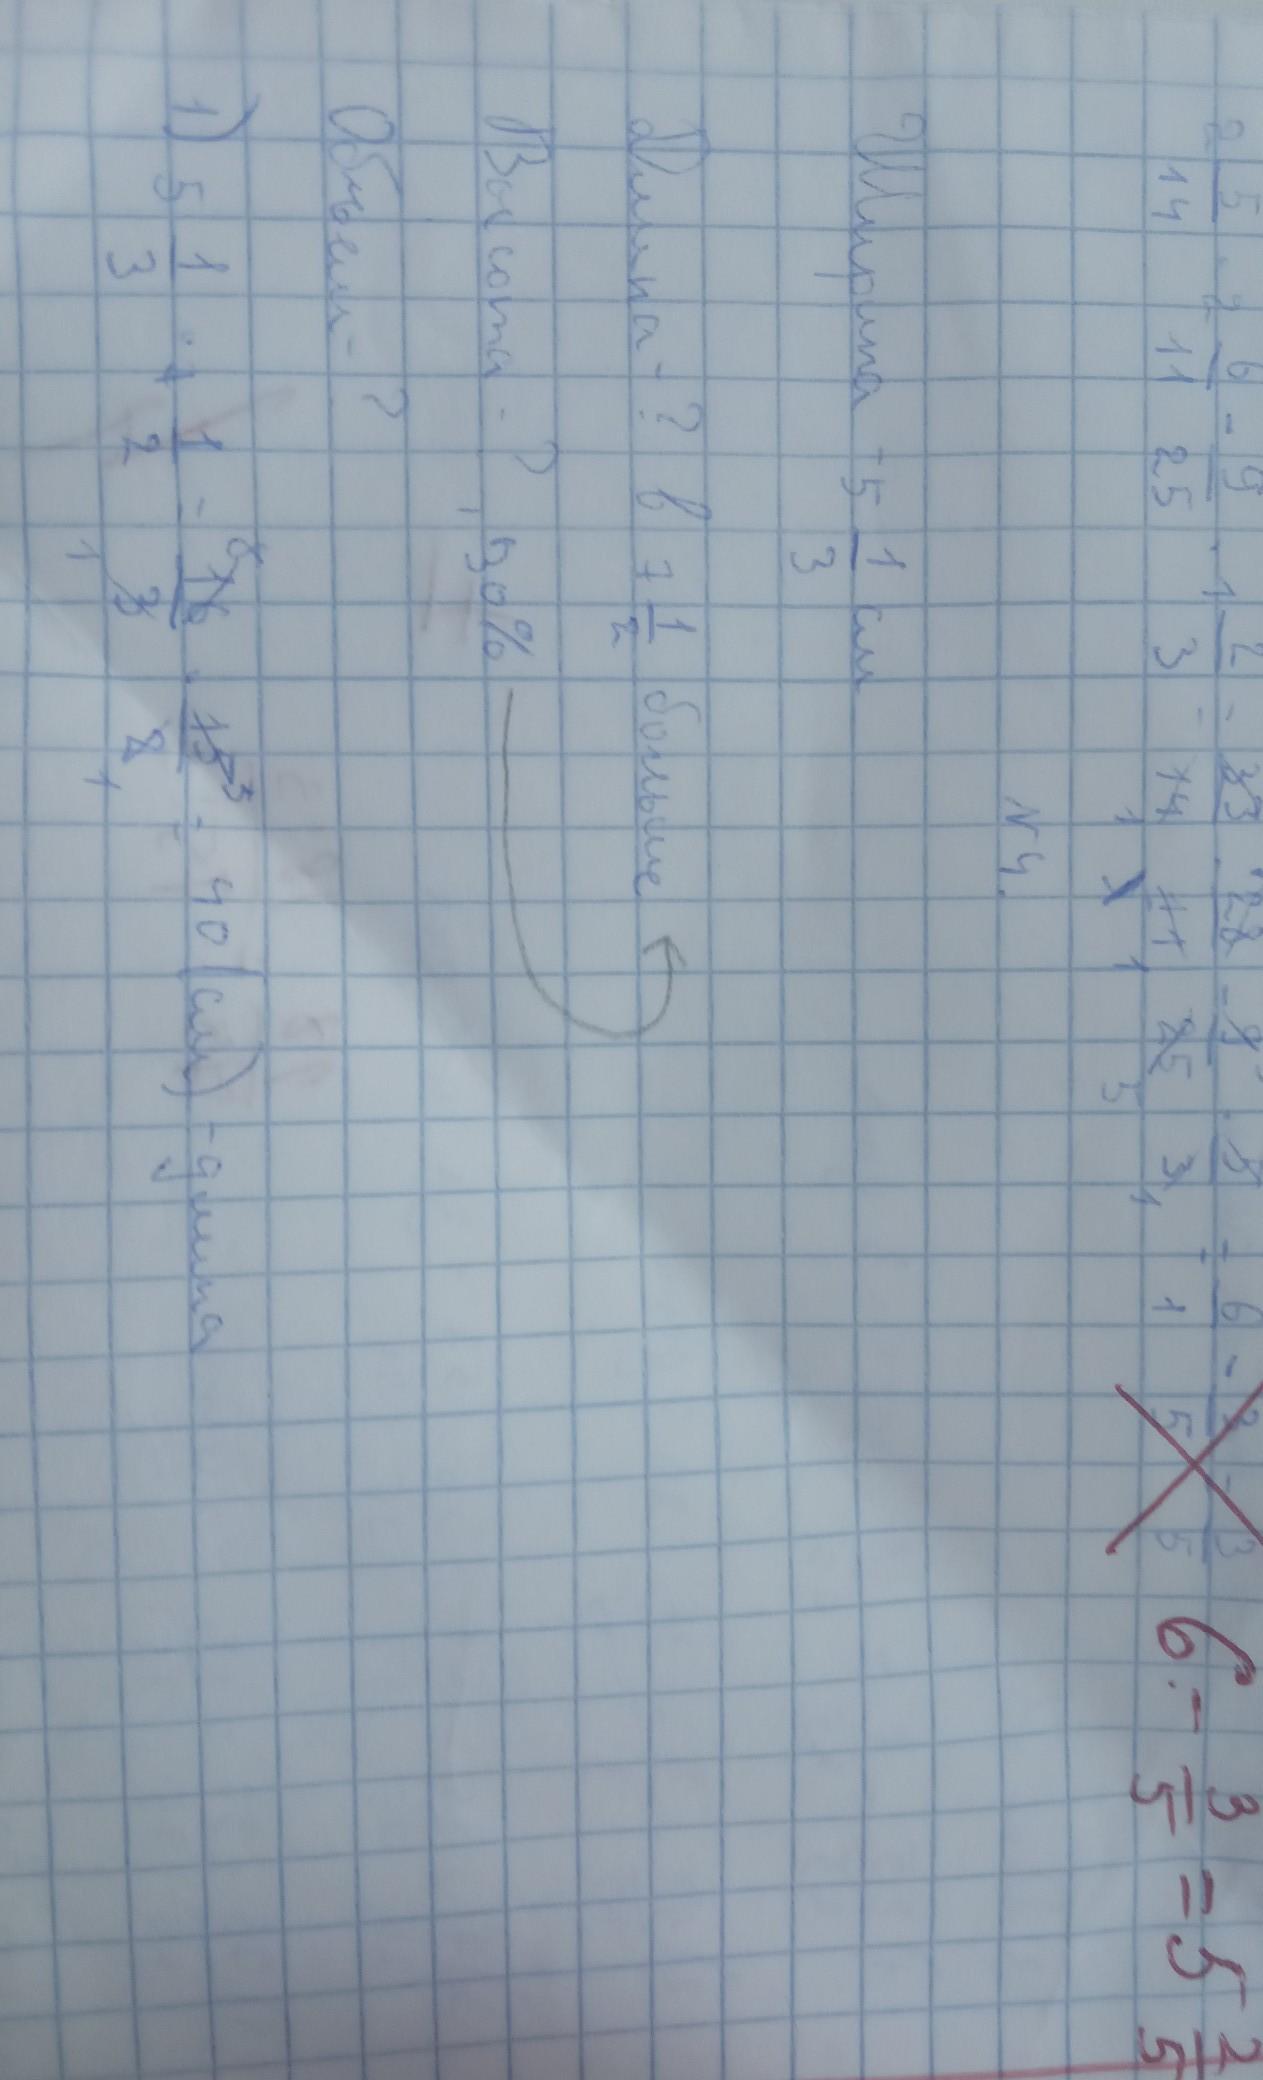 2 5/14 · 2 6/11 - 9/25 · 1 2/3 = 33/14 · 28/11 - 9/25 · 5/3 = 6/1 - 3/5 = 3/5 6 - 3/5 = 5 2/5
N4.
Ширина - 5 1/3 см
Длина - ? в 7 1/2 больше
Высота - ?, 30%
Объем - ?
1) 5 1/3 · 7 1/2 = 16/3 · 15/2 = 40 (см) - длина